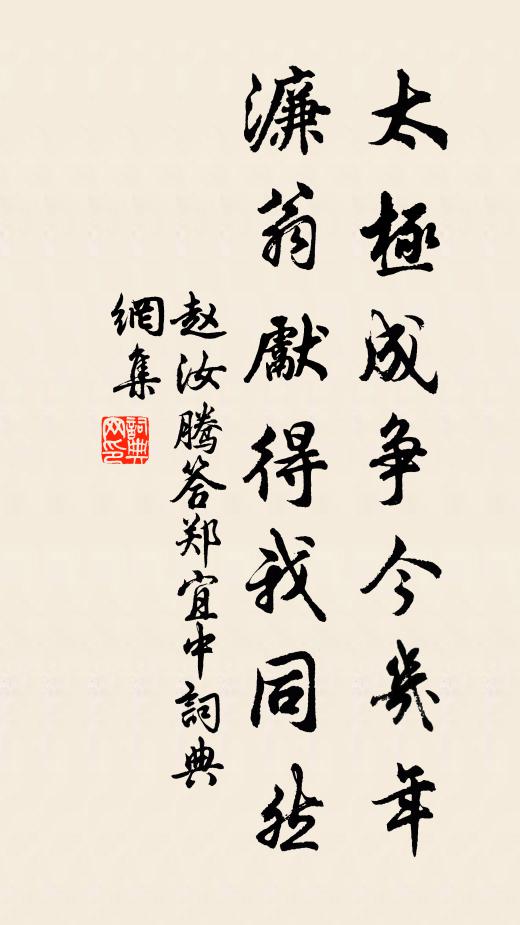 太極成争今幾年
濂翁獻得我同然
赵汝騰答郑宜中詞典
網集
詞典網印